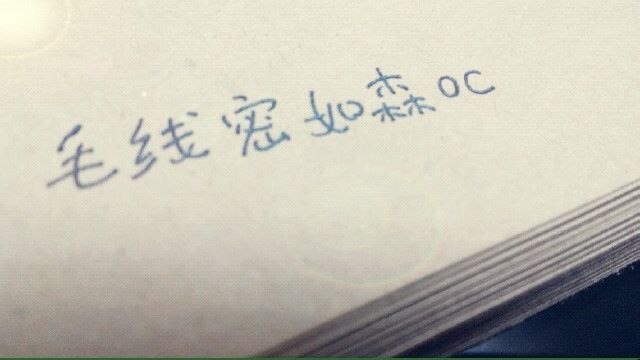 毛线密如森OC